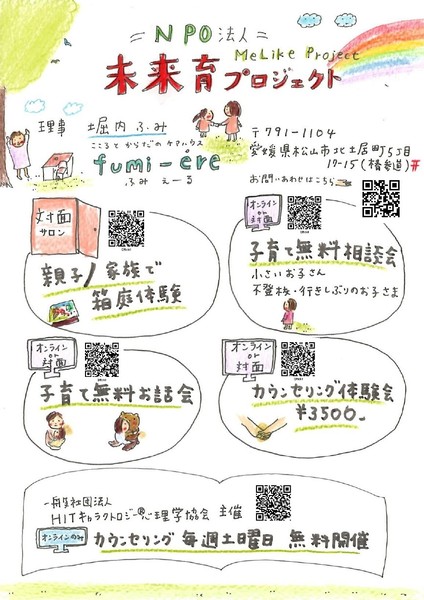 ＝NPO法人＝
MeLike Project
未来育プロジェクト
理事 堀内ふみ
こころとからだのケアハウス
fumi-ére
ふみえーる
〒791-1104
愛媛県松山市北土居町5丁目
17-15(椿参道)
お問い合わせはこちら
対面
サロン
親子/家族で
箱庭体験
オンライン
or
対面
子育て無料相談会
小さいお子さん
不登校・行きしぶりのお子さま
オンライン
or
対面
子育て無料お話会
オンライン
or
対面
カウンセリング体験会
¥3500-
一般社団法人
HITキャラクトロジー®心理学協会 主催
オンラインのみ
カウンセリング 毎週土曜日 無料開催